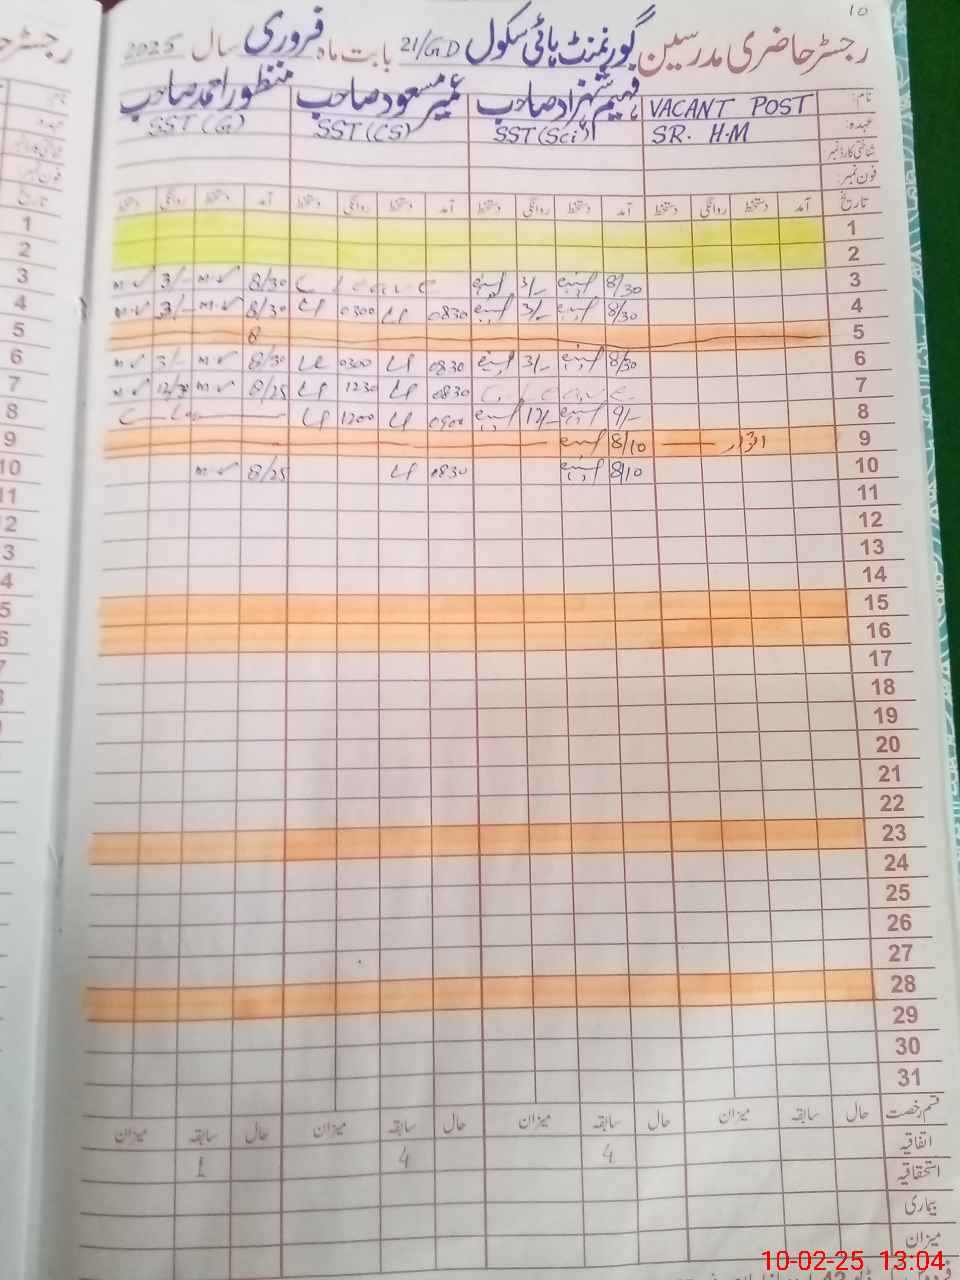 10
رجسٹر حاضری مدرسین گورنمنٹ ہائی سکول 21/GD بابت ماہ فروری سال 2025
نام: VACANT POST فہیم شہزاد صاحب عمیر مسعود صاحب منظور احمد صاحب
عہدہ: SR. H.M SST (Sci) SST (CS) SST (G)
شناختی کارڈ نمبر
فون نمبر:
تاریخ آمد دستخط روانگی دستخط آمد دستخط روانگی دستخط آمد دستخط روانگی دستخط آمد دستخط روانگی دستخط
1
2
3 8/30 3/- C leave 8/30 3/-
4 8/30 3/- 0830 0300 8/30 3/-
5
6 8/30 3/- 0830 0300 8/30 3/-
7 C. leave 0830 1230 8/25 12/30
8 9/- 12/- 0900 1200
9 اتوار 8/10
10 8/10 0830 8/25
11
12
13
14
15
16
17
18
19
20
21
22
23
24
25
26
27
28
29
30
31
قسم رخصت حال سابقہ میزان حال سابقہ میزان حال سابقہ میزان حال سابقہ میزان
اتفاقیہ 4 4 1
استحقاقیہ
بیماری
میزان
10-02-25 13:04